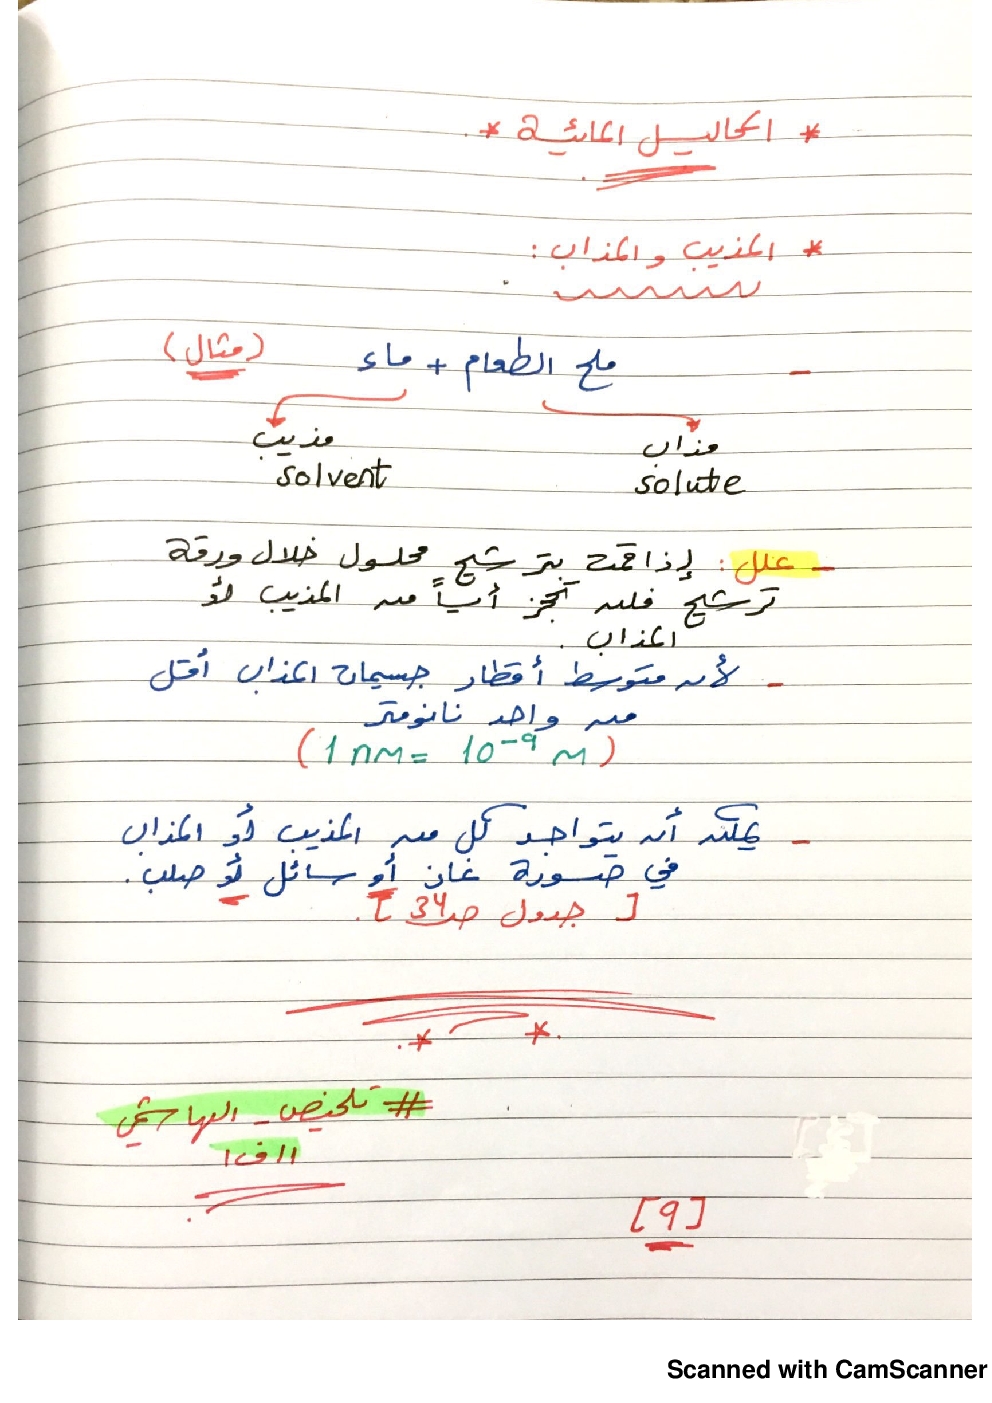 * المحاليل المائية *
* المذيب والمذاب :
- ملح الطعام + ماء (مثال)
مذاب مذيب
solute solvent
- علل : إذا قمت بترشيح محلول خلال ورقة
ترشيح فلن تحجز أياً من المذيب أو
المذاب .
- لأن متوسط أقطار جسيمات المذاب أقل
من واحد نانومتر
(1 nm = 10⁻⁹ m)
- يمكن أن يتواجد كل من المذيب أو المذاب
في صورة غاز أو سائل أو صلب .
[ جدول صـ34 ] .
* *
# تلخيص_الهاشمي
١١ف١
[9]
Scanned with CamScanner